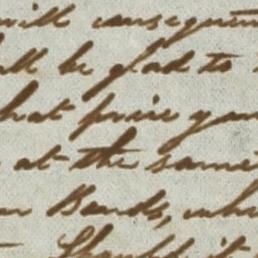 will consequen
ll be glad to
hat price you
at the same
Bonds, whi
Should it